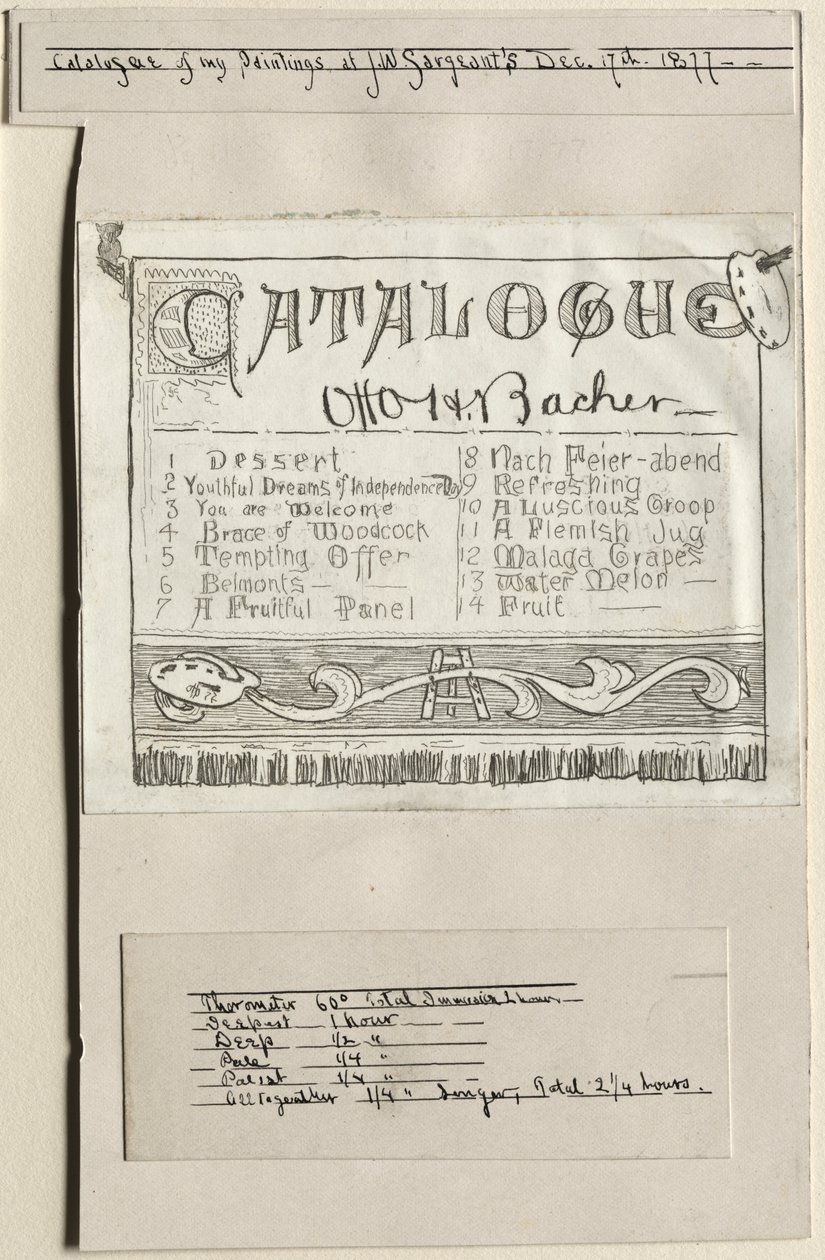 Catalogue of my Paintings at J.W Sargeant's Dec. 17th. 1877 - -
CATALOGUE
Otto H. Bacher
1 Dessert
2 Youthful Dreams of Independence Day
3 You are Welcome
4 Brace of Woodcock
5 Tempting Offer
6 Belmonts — —
7 A Fruitful Panel
8 Nach Feier-abend
9 Refreshing
10 A Luscious Groop
11 A Flemish Jug
12 Malaga Grapes
13 Water Melon —
14 Fruit —
Thormometer 60° Total Immersion 2 hours —
Deepest 1 hour — —
Deep 1/2 "
Pale 1/4 "
Palest 1/4 "
Alltogeather 1/4 " longer, Total 2 1/4 hours.